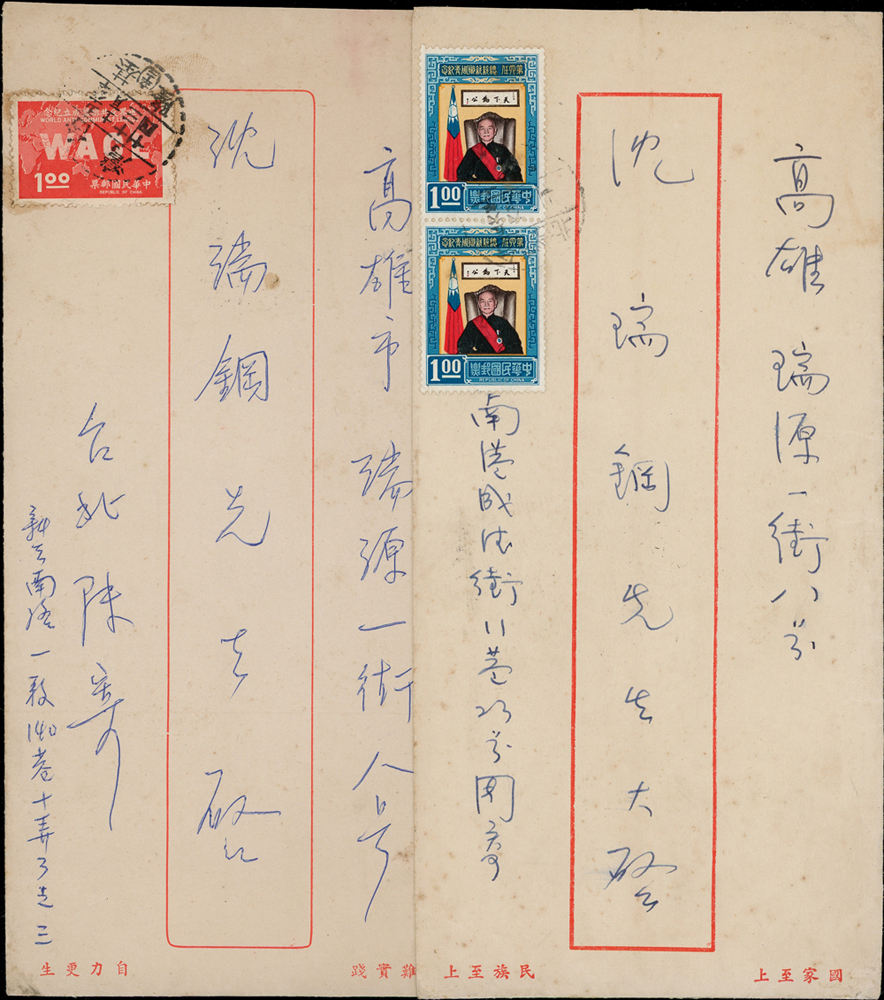 高雄瑞源一街八号
沈瑞鋼先生大啓
南港成德街11巷23号周寄
天下為公
1.00
中華民國郵票
REPUBLIC OF CHINA
天下為公
1.00
中華民國郵票
REPUBLIC OF CHINA
國家至上
民族至上
高雄市瑞源一街八号
沈瑞鋼先生啓
台北陳寄
新生南路一段140巷十弄3之三
WACL
1.00
中華民國郵票
REPUBLIC OF CHINA
難實踐
自力更生